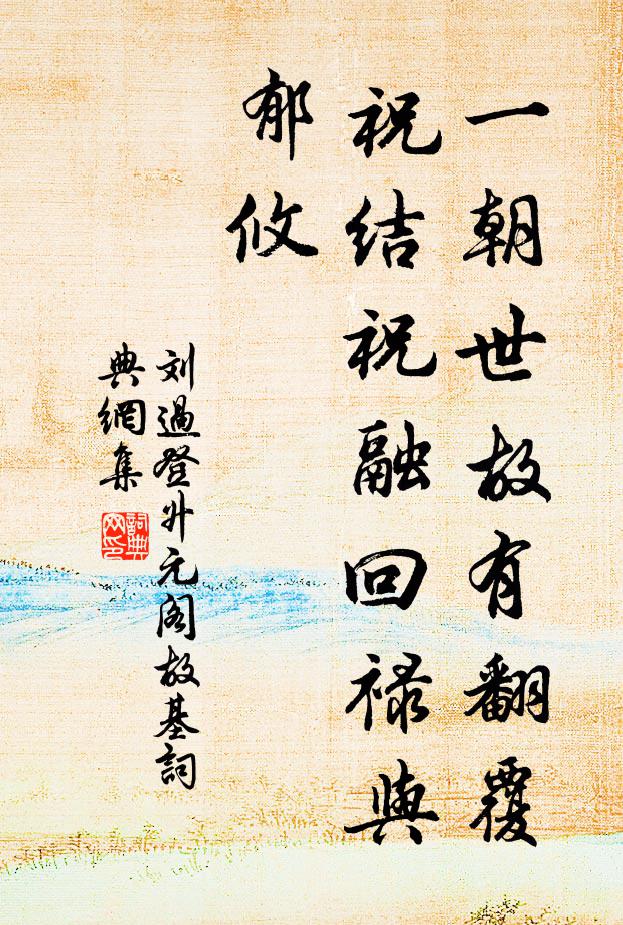 一朝世故有翻覆
祝结祝融回禄與
郁攸
刘過登升元阁故基詞
典網集
詞典
网印